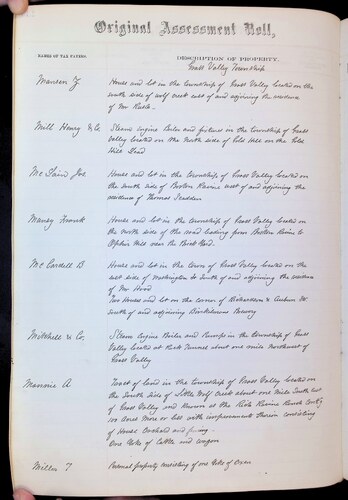 Original Assessment Roll,
NAMES OF TAX PAYERS.
DESCRIPTION OF PROPERTY.
Grass Valley Township
House and lot in the township of Grass Valley located on the
south side of wolf creek east of and adjoining the residence
of Mr
Mill Henry & Co
Steam Engine Boiler and fixtures in the township of Grass
Valley located on the North side of Hill on the
Hill Lead
House and lot in the township of Grass Valley located on
the south side of Boston Ravine west of and adjoining the
residence of Thomas
House and lot in the township of Grass Valley located on
the north side of the road leading from Boston Ravine to
Hill near the
Mc Cardell B
House and lot in the town of Grass Valley located on the
east side of Washington St South of and adjoining the residence
of Mr Wood
Two Houses and lot on the corner of Richardson & Auburn St
south of and adjoining Brewery
Mitchell & Co,
Steam Engine Boiler and Pumps in the township of Grass
Valley located at Tunnel about one mile Northwest of
Grass Valley
A
Tract of land in the township of Grass Valley located on
the South side of Little Wolf Creek about one mile South east
of Grass Valley and known as the Ranch Cont'g
100 Acres more or less with improvements thereon consisting
of House Orchard and
One Yoke of Cattle and wagon
Miller T
Personal property consisting of one Yoke of Oxen